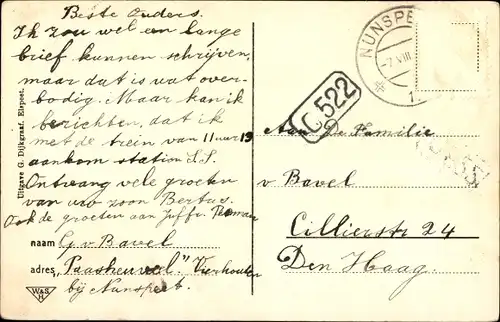 Beste Ouders.
Ik zou wel een lange
brief kunnen schrijven,
maar dat is wat over-
bodig. Maar kan ik
berichten, dat ik
met de trein van 11 uur 19
aankom station S.S.
Ontvang vele groeten
van uw zoon Bertus.
Ook de groeten aan Juffr.
naam G. v Bavel
adres, "Paasheuvel." Vierhouten
bij Nunspeet.
Uitgave G. Dijkgraaf. Elspeet.
W&S
H
NUNSPE
-7 VIII
C 522
Aan De Familie
v Bavel
Cillierstr 24
Den Haag.